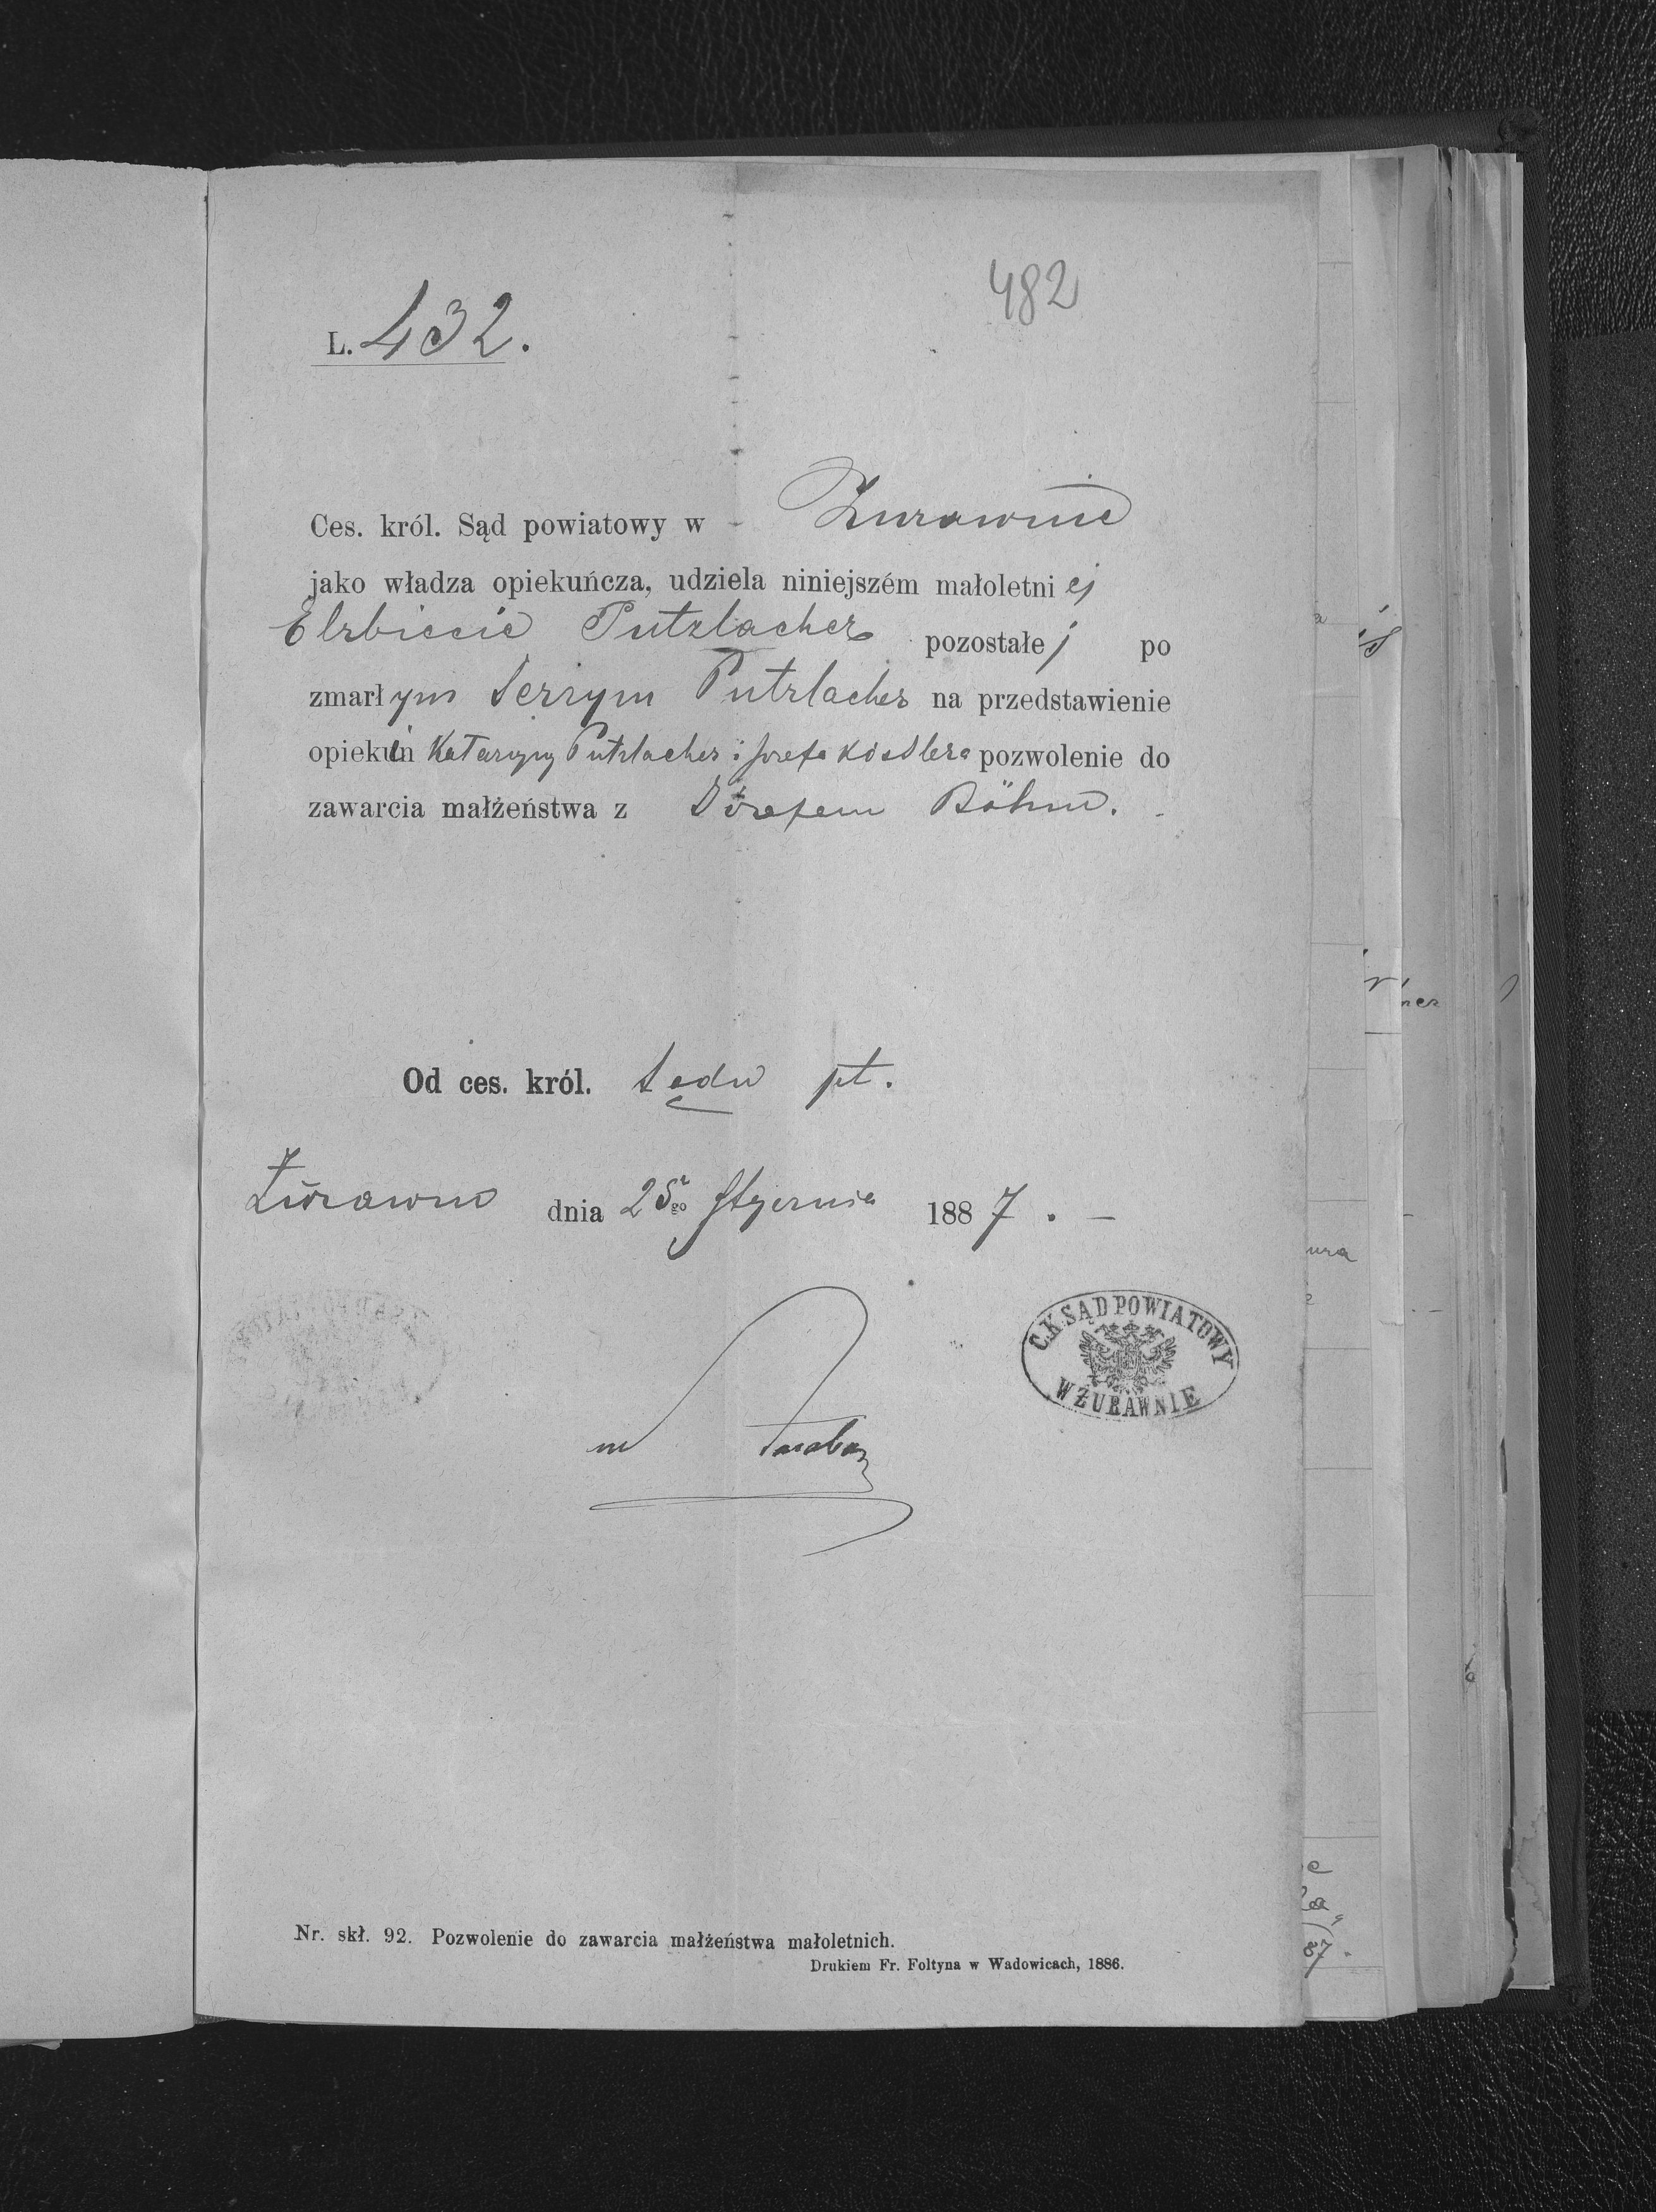 482
L. 432.
Ces. król. Sąd powiatowy w Żurawnie
jako władza opiekuńcza, udziela niniejszém małoletniej
Elzbiecie Putzlacher pozostałej po
zmarłym Jerzym Putzlacher na przedstawienie
opiekun Katarzyny Putzlacher i Józefa Kösslera pozwolenie do
zawarcia małżeństwa z Józefem Böhm.
Od ces. król. Sądu pt.
Żurawno dnia 25go Stycznia 1887. —
C.K. SĄD POWIATOWY
W ŻURAWNIE
Nr. skł. 92. Pozwolenie do zawarcia małżeństwa małoletnich.
Drukiem Fr. Foltyna w Wadowicach, 1886.